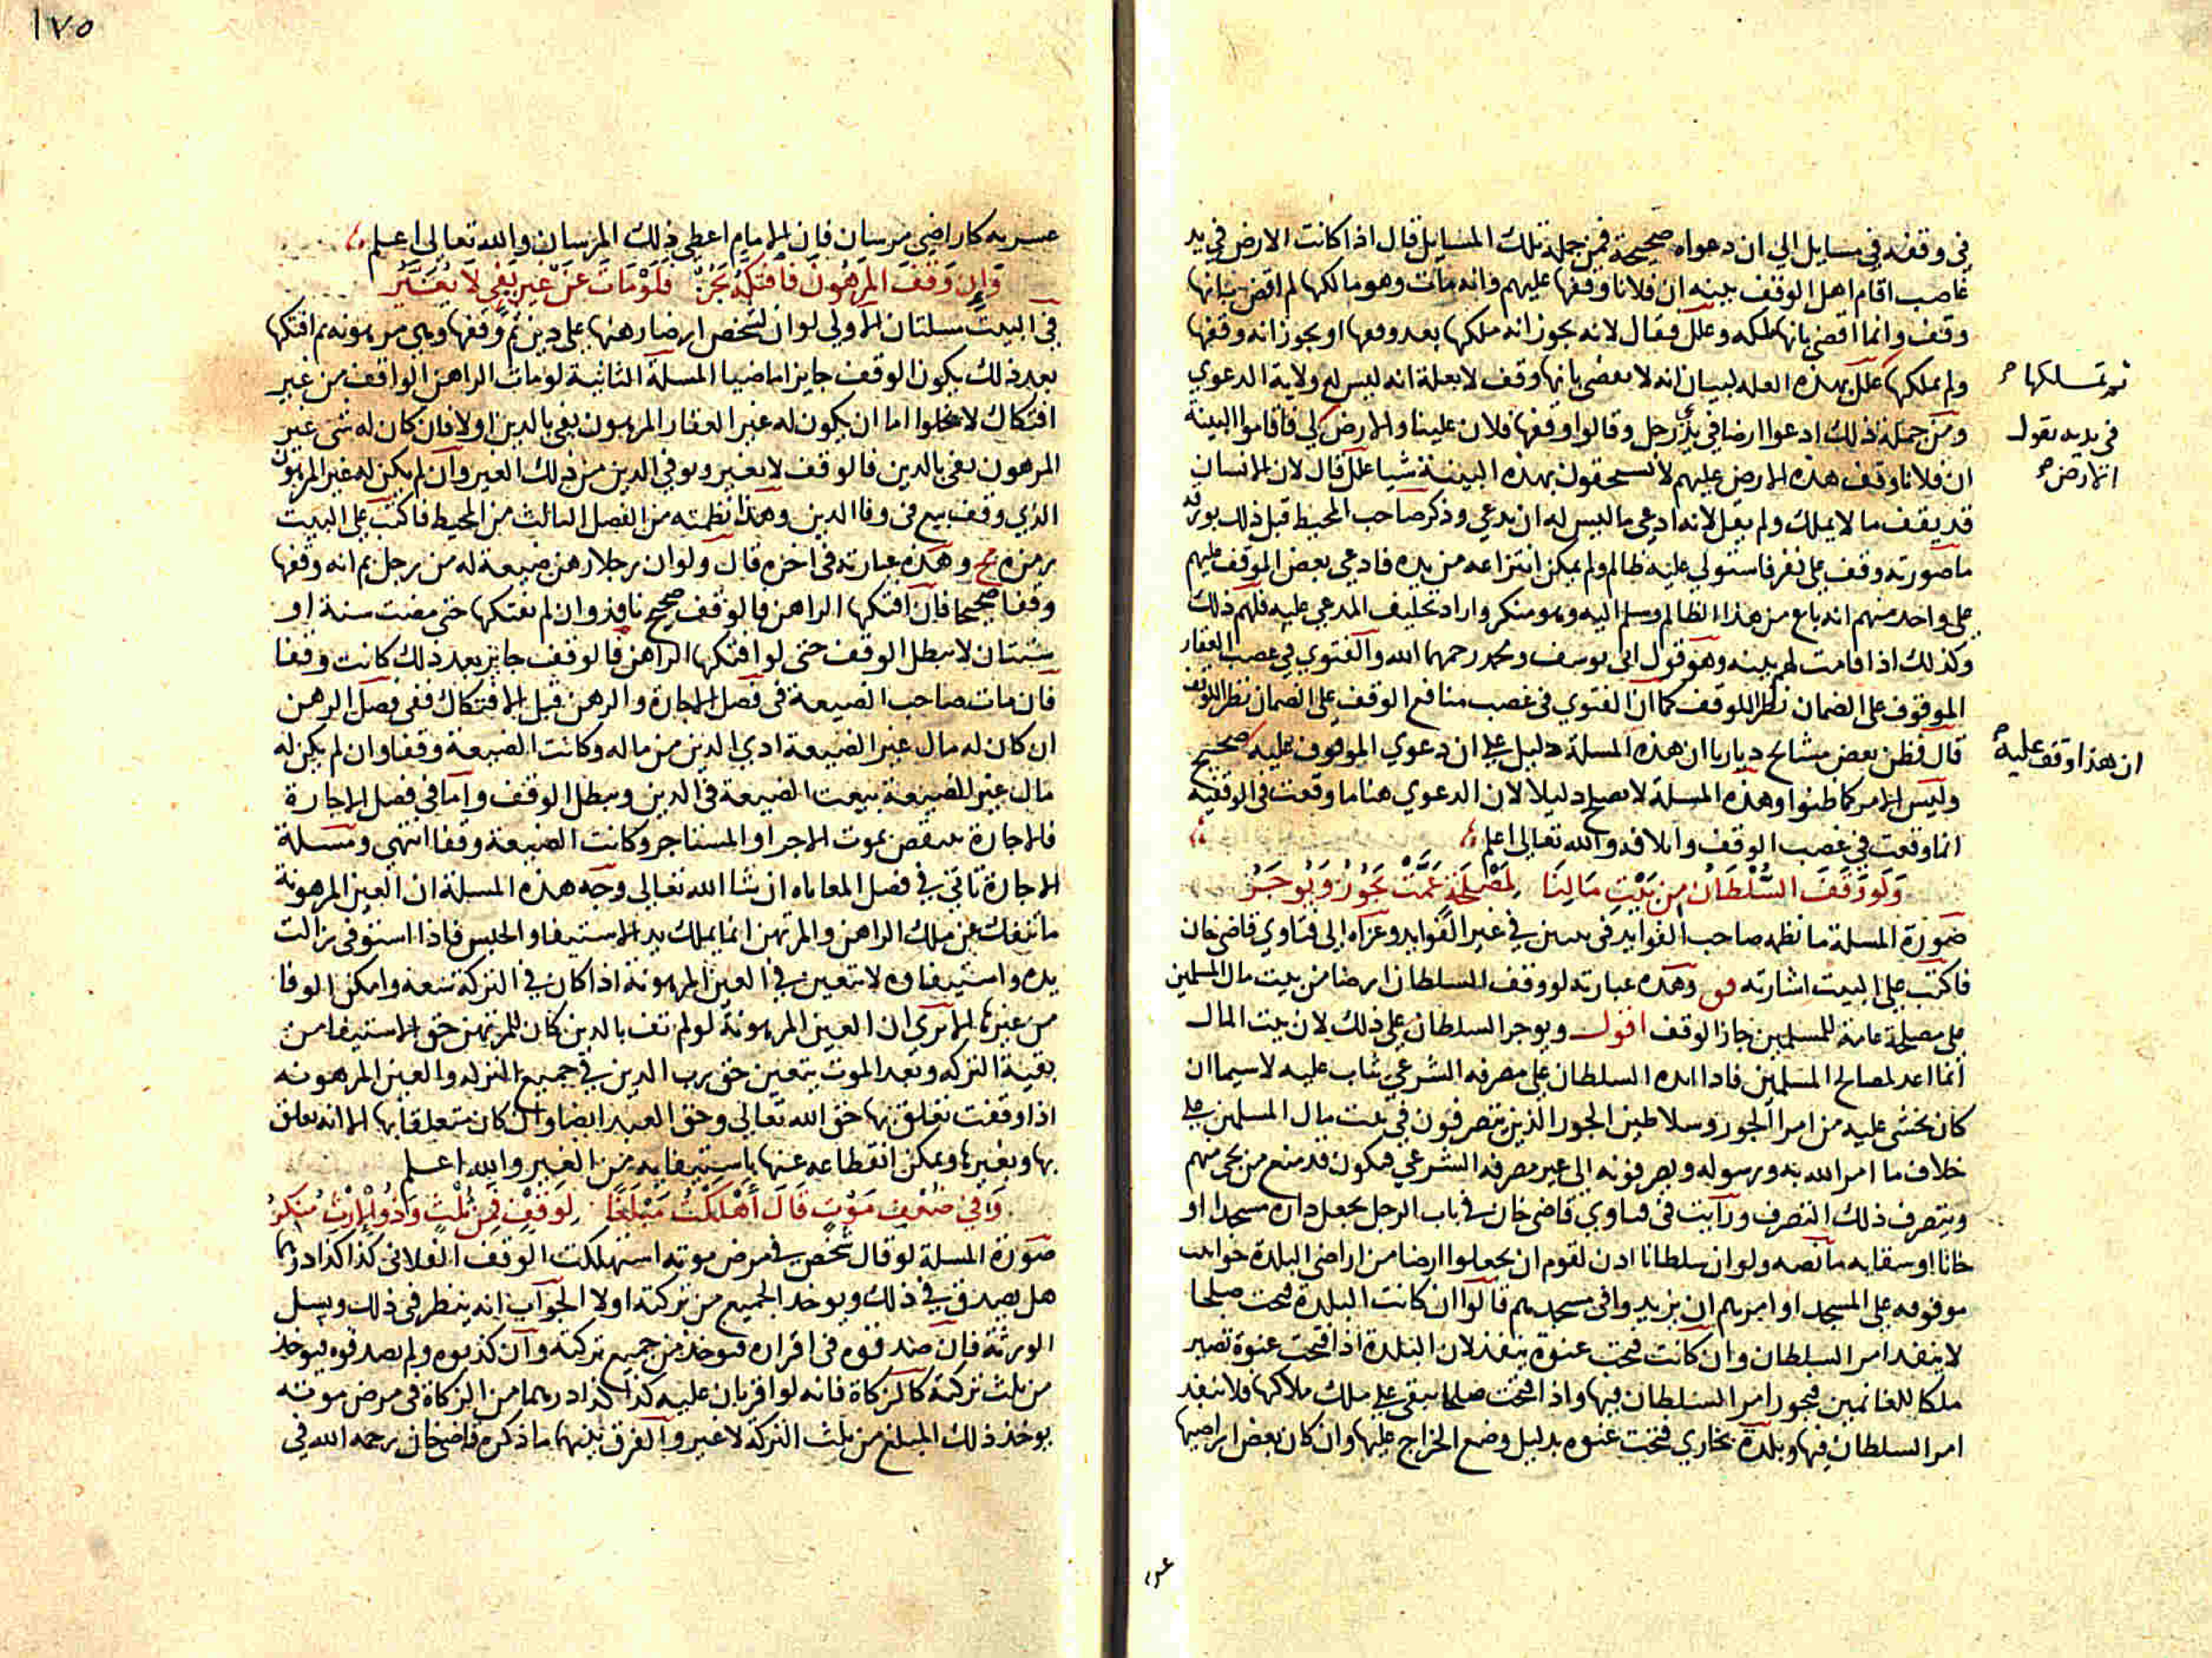 في وقفه في مسايل الي ان دعواه صحيحة فمن جملة تلك المسايل قال اذا كانت الارض في يد
غاصب اقام اهل الوقف بينه ان فلانا وقفها عليهم وانه مات وهو مالكها لم اقض بانها
وقف وانما اقضي بانها ملكه وعلل فقال لانه يجوز انه ملكها بعد وقفها او يجوز انه وقفها
ولم يملكها علل بهذه العله لبيان انه لا يقضي بانها وقف لا بعلة انه ليس له ولاية الدعوي
ومن جملة ذلك ادعوا ارضا في يد رجل وقالوا وقفها فلان علينا والارض لي فاقاموا البينة
ان فلانا وقف هذه الارض عليهم لا يستحقون بهذه البينة شيا علل قال لان الانسان
قد يقف ما لا يملك ولم يقل لانه ادعي ما ليس له ان يدعي وذكر صاحب المحيط قبل ذلك بورقة
ما صورته وقف علي نفر فاستولي عليه ظالم ولم يمكن انتزاعه من يده فادعي بعض الموقف عليهم
علي واحد منهم انه باع من هذا الظالم وسلم اليه وهو منكر واراد تحليف المدعي عليه فلهم ذلك
وكذلك اذا قامت لهم بينه وهو قول ابي يوسف ومحمد رحمهما الله والفتوي في غصب العقار
الموقوف علي الضمان نظرا للوقف كما ان الفتوي في غصب منافع الوقف علي الضمان نظرا للوقف
قال فظن بعض مشايخ ديارنا ان هذه المسلة دليل علي ان دعوي الموقوف عليه صحيح
وليس الامر كما ظنوا وهذه المسلة لا تصلح دليلا لان الدعوي هنا ما وقعت في الوقفية
انما وقعت في غصب الوقف واتلافه والله تعالي اعلم
وَلَو وَقَفَ السُّلْطَانُ مِن بَيْتِ مَالِنَا لِمَصْلَحَةٍ عَمَّتْ يَجُوزُ وَيُوجَرُ
صورة المسلة ما نظمه صاحب الفوايد في بيتين في غير الفوايد وعزاه الي فتاوي قاضي خان
فاكتب علي البيت اشارته فق وهذه عبارته لو وقف السلطان ارضا من بيت مال المسلمين
علي مصلحة عامة للمسلمين جاز الوقف اقول ويوجر السلطان علي ذلك لان بيت المال
انما اعد لمصالح المسلمين فاذا ابده السلطان علي مصرفه الشرعي يثاب عليه لا سيما ان
كان يخشي عليه من امرا الجور وسلاطين الجور الذين يتصرفون في بيت مال المسلمين علي
خلاف ما امر الله به ورسوله ويصرفونه الي غير مصرفه الشرعي فيكون قد منع من يجي منهم
ويتصرف ذلك التصرف ورايت في فتاوي قاضي خان في باب الرجل يجعل داره مسجدا او
خانا او سقايه ما نصه ولو ان سلطانا اذن لقوم ان يجعلوا ارضا من اراضي البلدة حوانيت
موقوفه علي المسجد او امرهم ان يزيدوا في مسجدهم قالوا ان كانت البلدة فتحت صلحا
لا ينفذ امر السلطان وان كانت فتحت عنوة ينفذ لان البلدة اذا فتحت عنوة تصير
ملكا للغانمين فيجوز امر السلطان فيها واذا فتحت صلحا تبقي علي ملك ملاكها فلا ينفذ
امر السلطان فيها وبلدة بخاري فتحت عنوه بدليل وضع الخراج عليها وان كان بعض اراضيها
ثم تملكها
في يديه يقول
الارض
ان هذا وقف عليه
١٧٥
عشريه كاراضي مرسان فان الامام اعطي ذلك المرسان والله تعالي اعلم
وَإِن وَقَفَ المَرهُونَ فَافتَكَّهُ يَجُزْ فَلَوْ مَاتَ عَن غَيرٍ يَفِي لَا يُغَيَّرُ
في البيت مسلتان الاولي لو ان لشخص ارضا رهنها علي دين ثم وقفها وهي مرهونه ثم افتكها
بعد ذلك يكون الوقف جايزا ماضيا المسلة الثانية لو مات الراهن الواقف من غير
افتكاك لا يخلوا اما ان يكون له غير العقار المرهون يفي بالدين او لا فان كان له شي غير
المرهون يفي بالدين فالوقف لا يغير ويوفي الدين من ذلك الغير وان لم يكن له غير المرهون
الذي وقف بيع في وفا الدين وهذا نظمته من الفصل الثالث من المحيط فاكتب علي البيت
رمزه مح وهذه عبارته في اخره قال ولو ان رجلا رهن ضيعة له من رجل ثم انه وقفها
وقفا صحيحا فان افتكها الراهن فالوقف صحيح نافذ وان لم يفتكها حتي مضت سنة او
سنتان لا يبطل الوقف حتي لو افتكها الراهن فالوقف جايز بعد ذلك كانت وقفا
فان مات صاحب الضيعة في فصل الاجارة والرهن قبل الافتكاك ففي فصل الرهن
ان كان له مال غير الضيعة ادي الدين من ماله وكانت الضيعة وقفا وان لم يكن له
مال غير الضيعة بيعت الضيعة في الدين وبطل الوقف واما في فصل الاجارة
فالاجارة تنتقض بموت الاجر او المستاجر وكانت الضيعة وقفا انتهي ومسلة
الاجارة تاتي في فصل المعاياه ان شا الله تعالي وجه هذه المسلة ان العين المرهونة
ما تنفك عن ملك الراهن والمرتهن انما يملك يد الاستيفا والحبس فاذا استوفي زالت
يده واستيفاوه لا يتعين في العين المرهونة اذا كان في التركة سعة وامكن الوفا
من غيرها الا تري ان العين المرهونة لو لم تف بالدين كان للمرتهن حق الاستيفا من
بقية التركه وبعد الموت يتعين حق رب الدين في جميع التركه والعين المرهونه
اذا وقفت تعلق بها حق الله تعالي وحق العبد ايضا وان كان متعلقا بها الا انه تعلق
بها وبغيرها ويمكن انقطاعه عنها باستيفايه من الغير والله اعلم
وَفِي ضُعفِ مَوْتٍ قَالَ أَهْلَكْتُ مَبْلَغًا لِوَقْفٍ فَمِن ثُلْثٍ وَذُو الإِرْثِ مُنكِرُ
صورة المسلة لو قال شخص في مرض موته استهلكت الوقف الفلاني كذا كذا درهما
هل يصدق في ذلك ويوخذ الجميع من تركته او لا الجواب انه ينظر في ذلك ويسل
الورثة فان صدقوه في اقراره فيوخذ من جميع تركته وان كذبوه ولم يصدقوه فيوخذ
من ثلث تركته كالزكاة فانه لو اقر بان عليه كذا كذا درهما من الزكاة في مرض موته
يوخذ ذلك المبلغ من ثلث التركة لا غير والفرق بينهما ما ذكره قاضي خان رحمه الله في